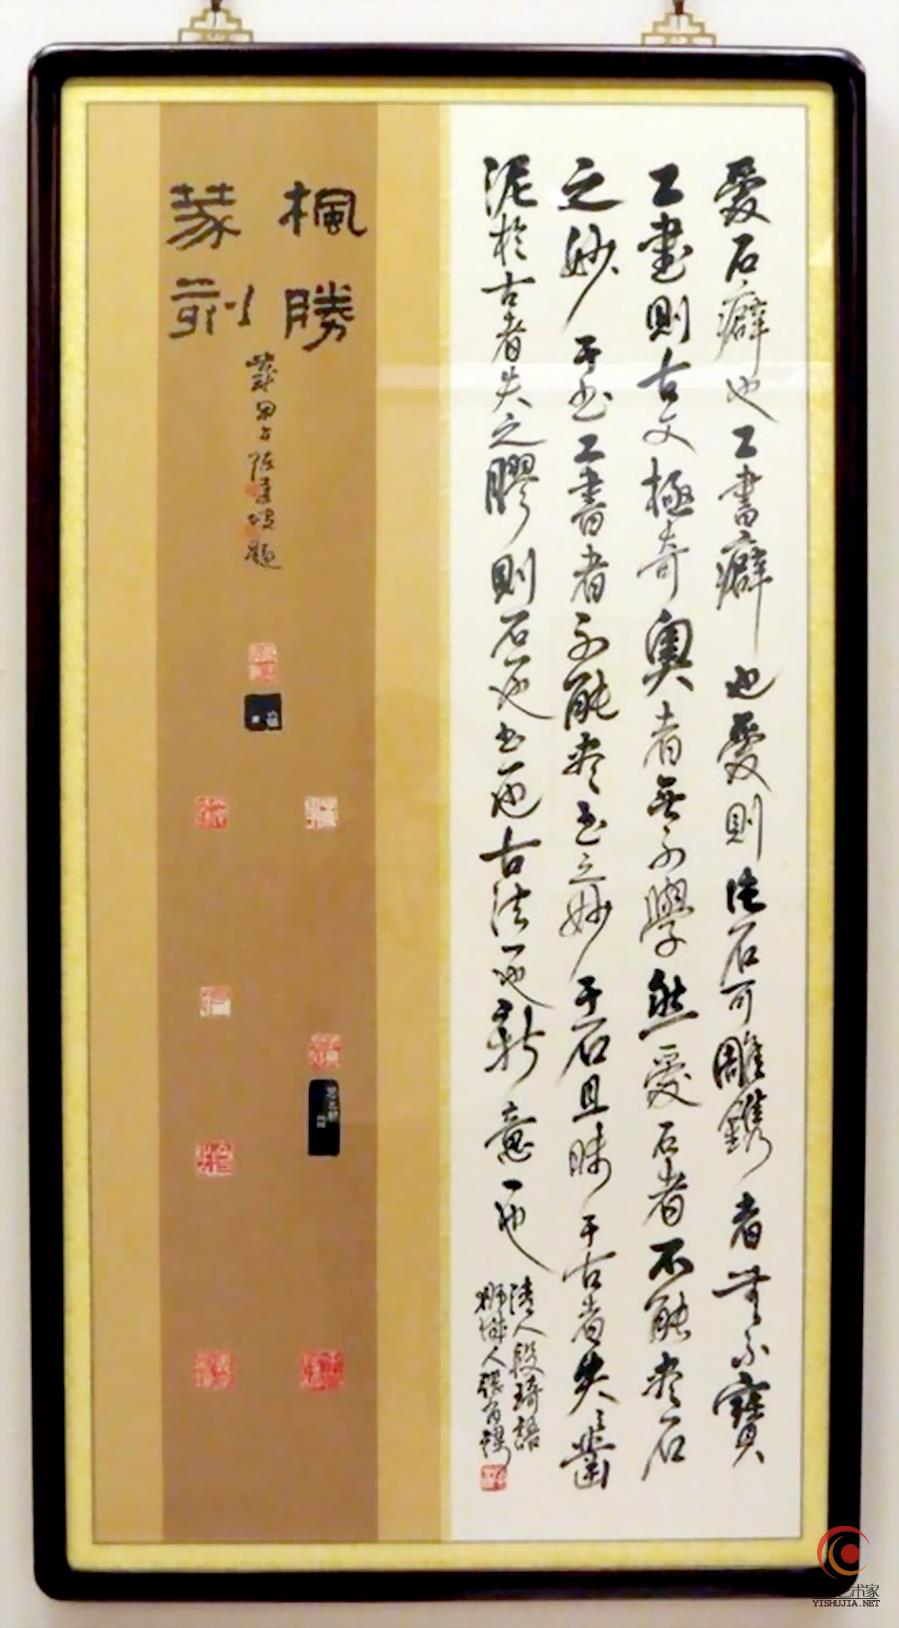 愛石癖也工書癖也愛則佳石可雕鐫者無不寶
工書則古文極奇奧者無不學然愛石者不能盡石
之妙于書工書者不能盡書之妙于石且昧于古者失之鑿
泥於古者失之膠則石一也書一也古法一也新意一也
清人段琦語
楓勝
篆刻
歲甲午張題
艺术家
YISHUJIA.NET